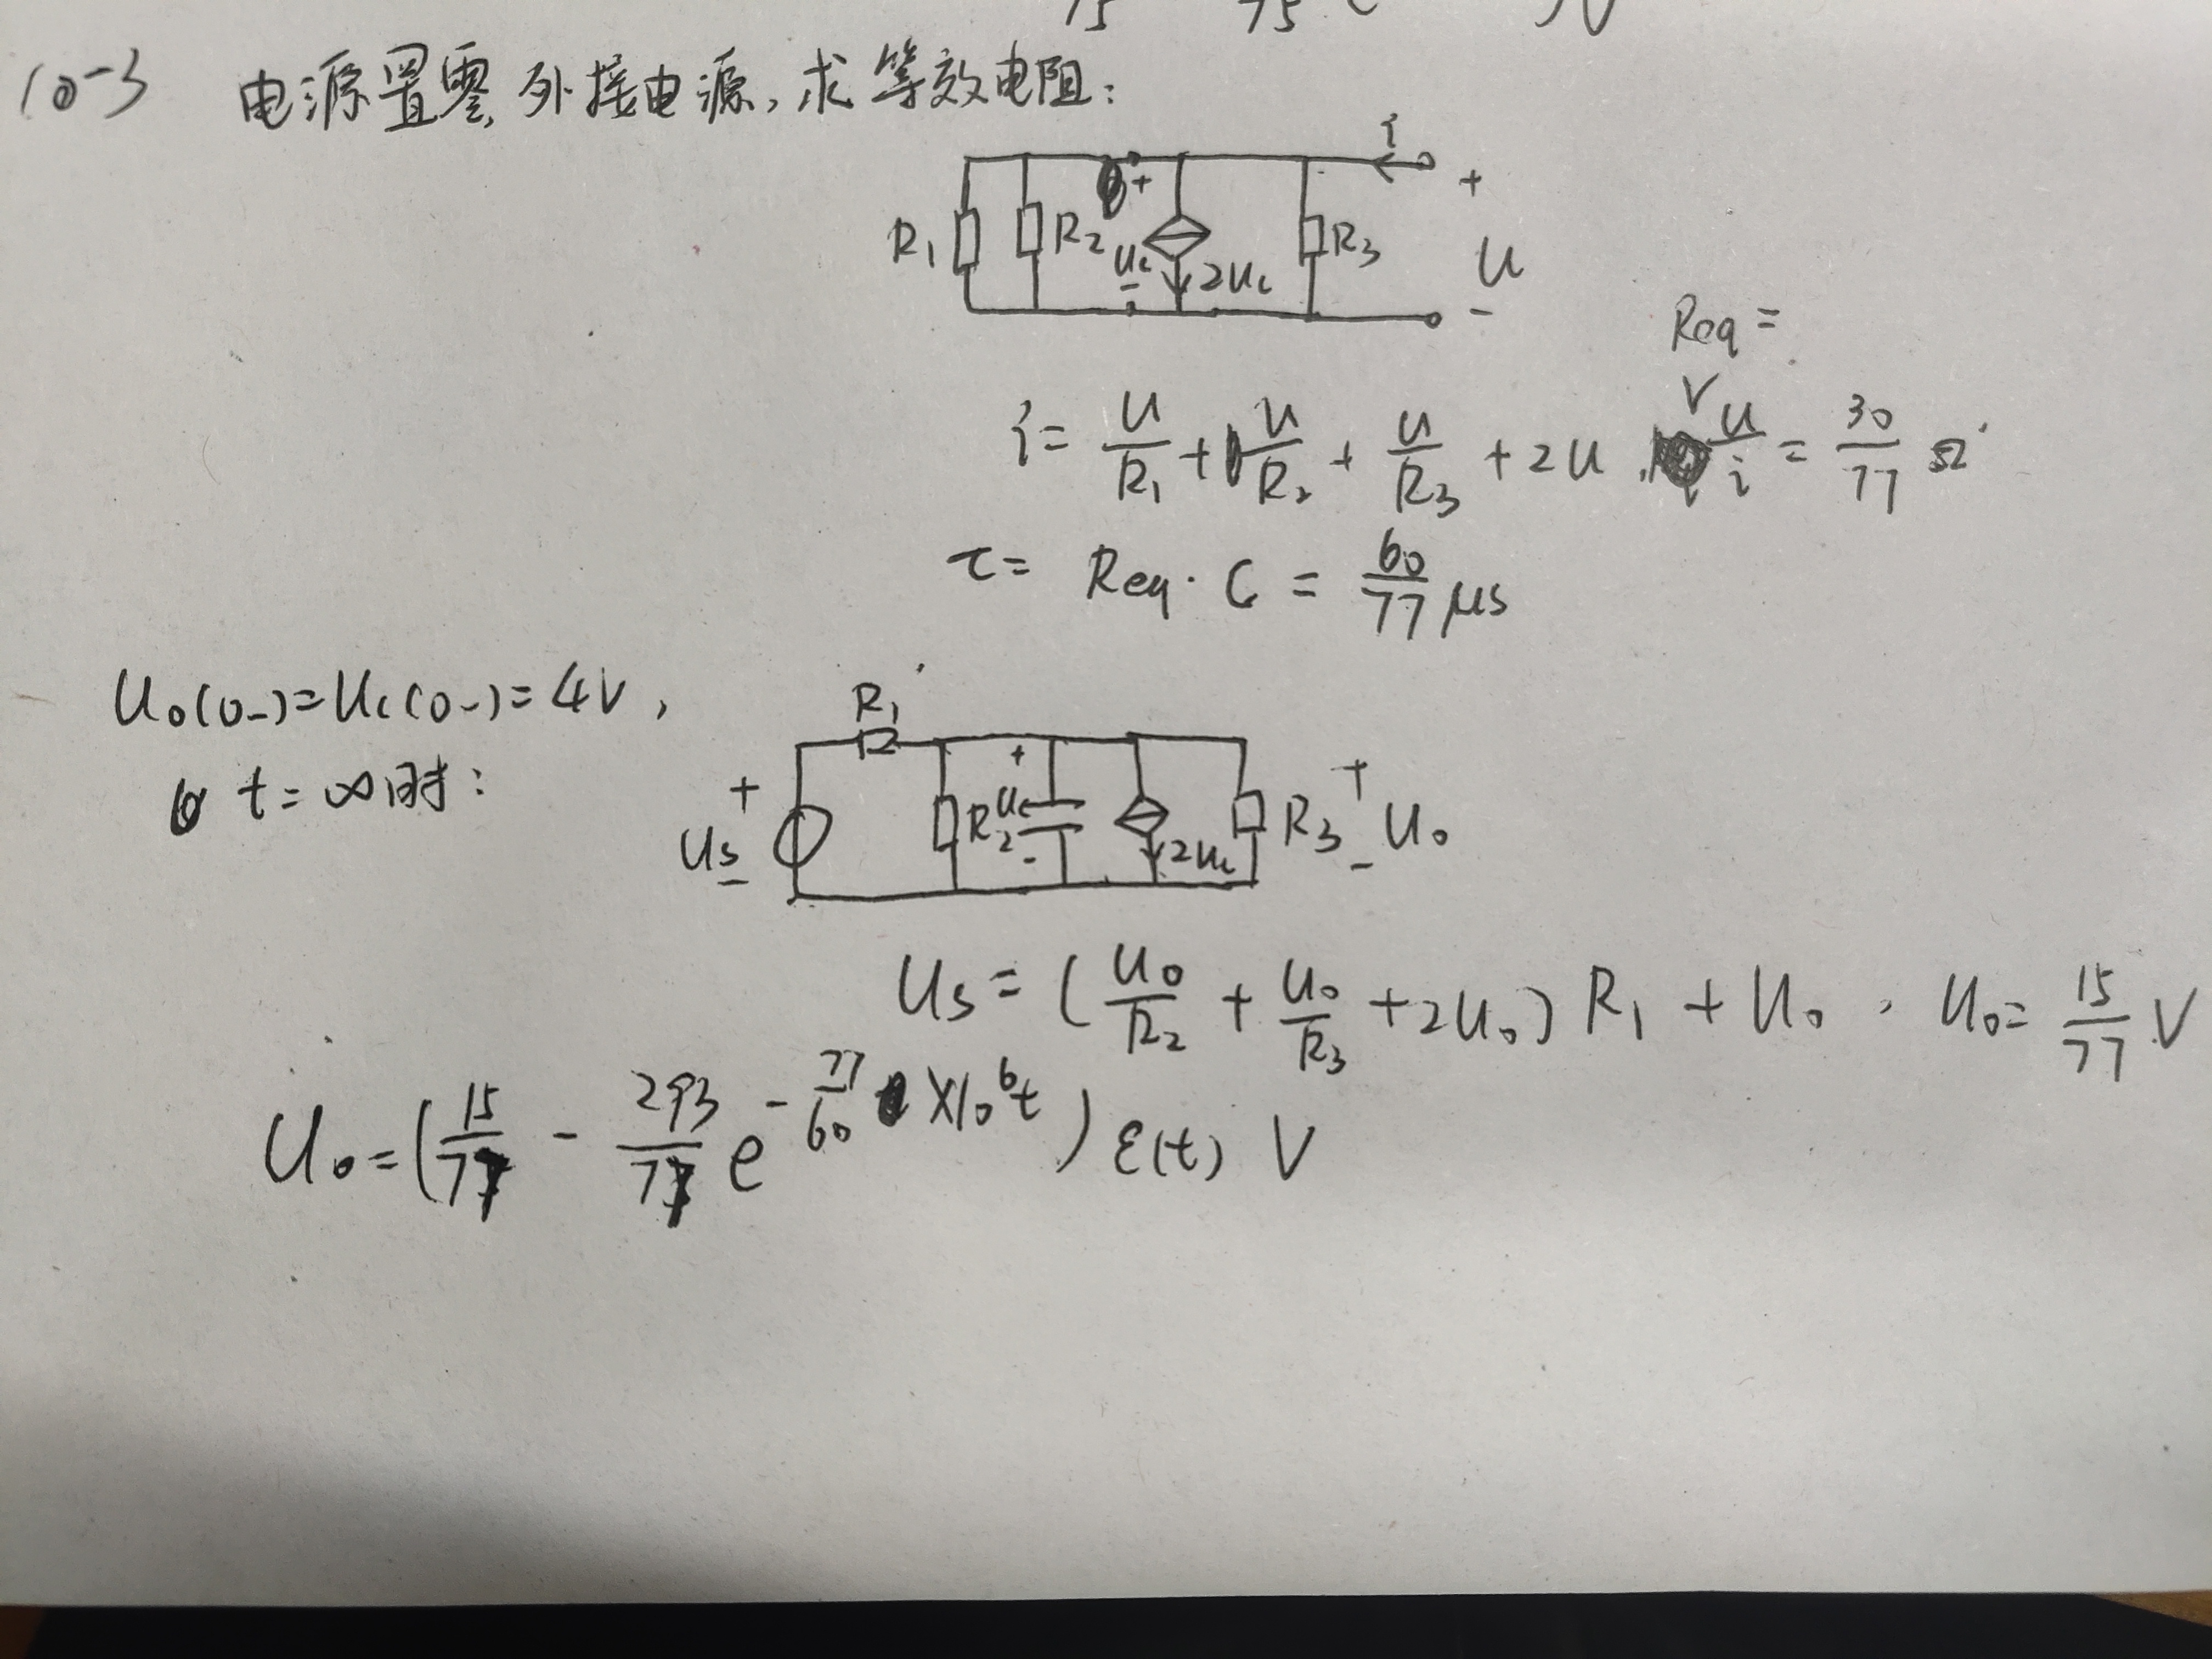 75 75
10-3 电源置零,外接电源,求等效电阻:
i
+
R₁ R₂ + R₃ U
Uc 2Uc
- -
Req =
i = U/R₁ + U/R₂ + U/R₃ + 2U , U/i = 30/77 Ω
τ = Req · C = 60/77 μs
U₀(0-)=Uc(0-)=4V,
R₁
t=∞时:
+ + +
Us R₂ Uc 2Uc R₃ U₀
- - -
Us = (U₀/R₂ + U₀/R₃ + 2U₀) R₁ + U₀ , U₀ = 15/77 V
U₀ = (15/77 - 293/77 e^(-77/60 ×10⁶t)) ε(t) V